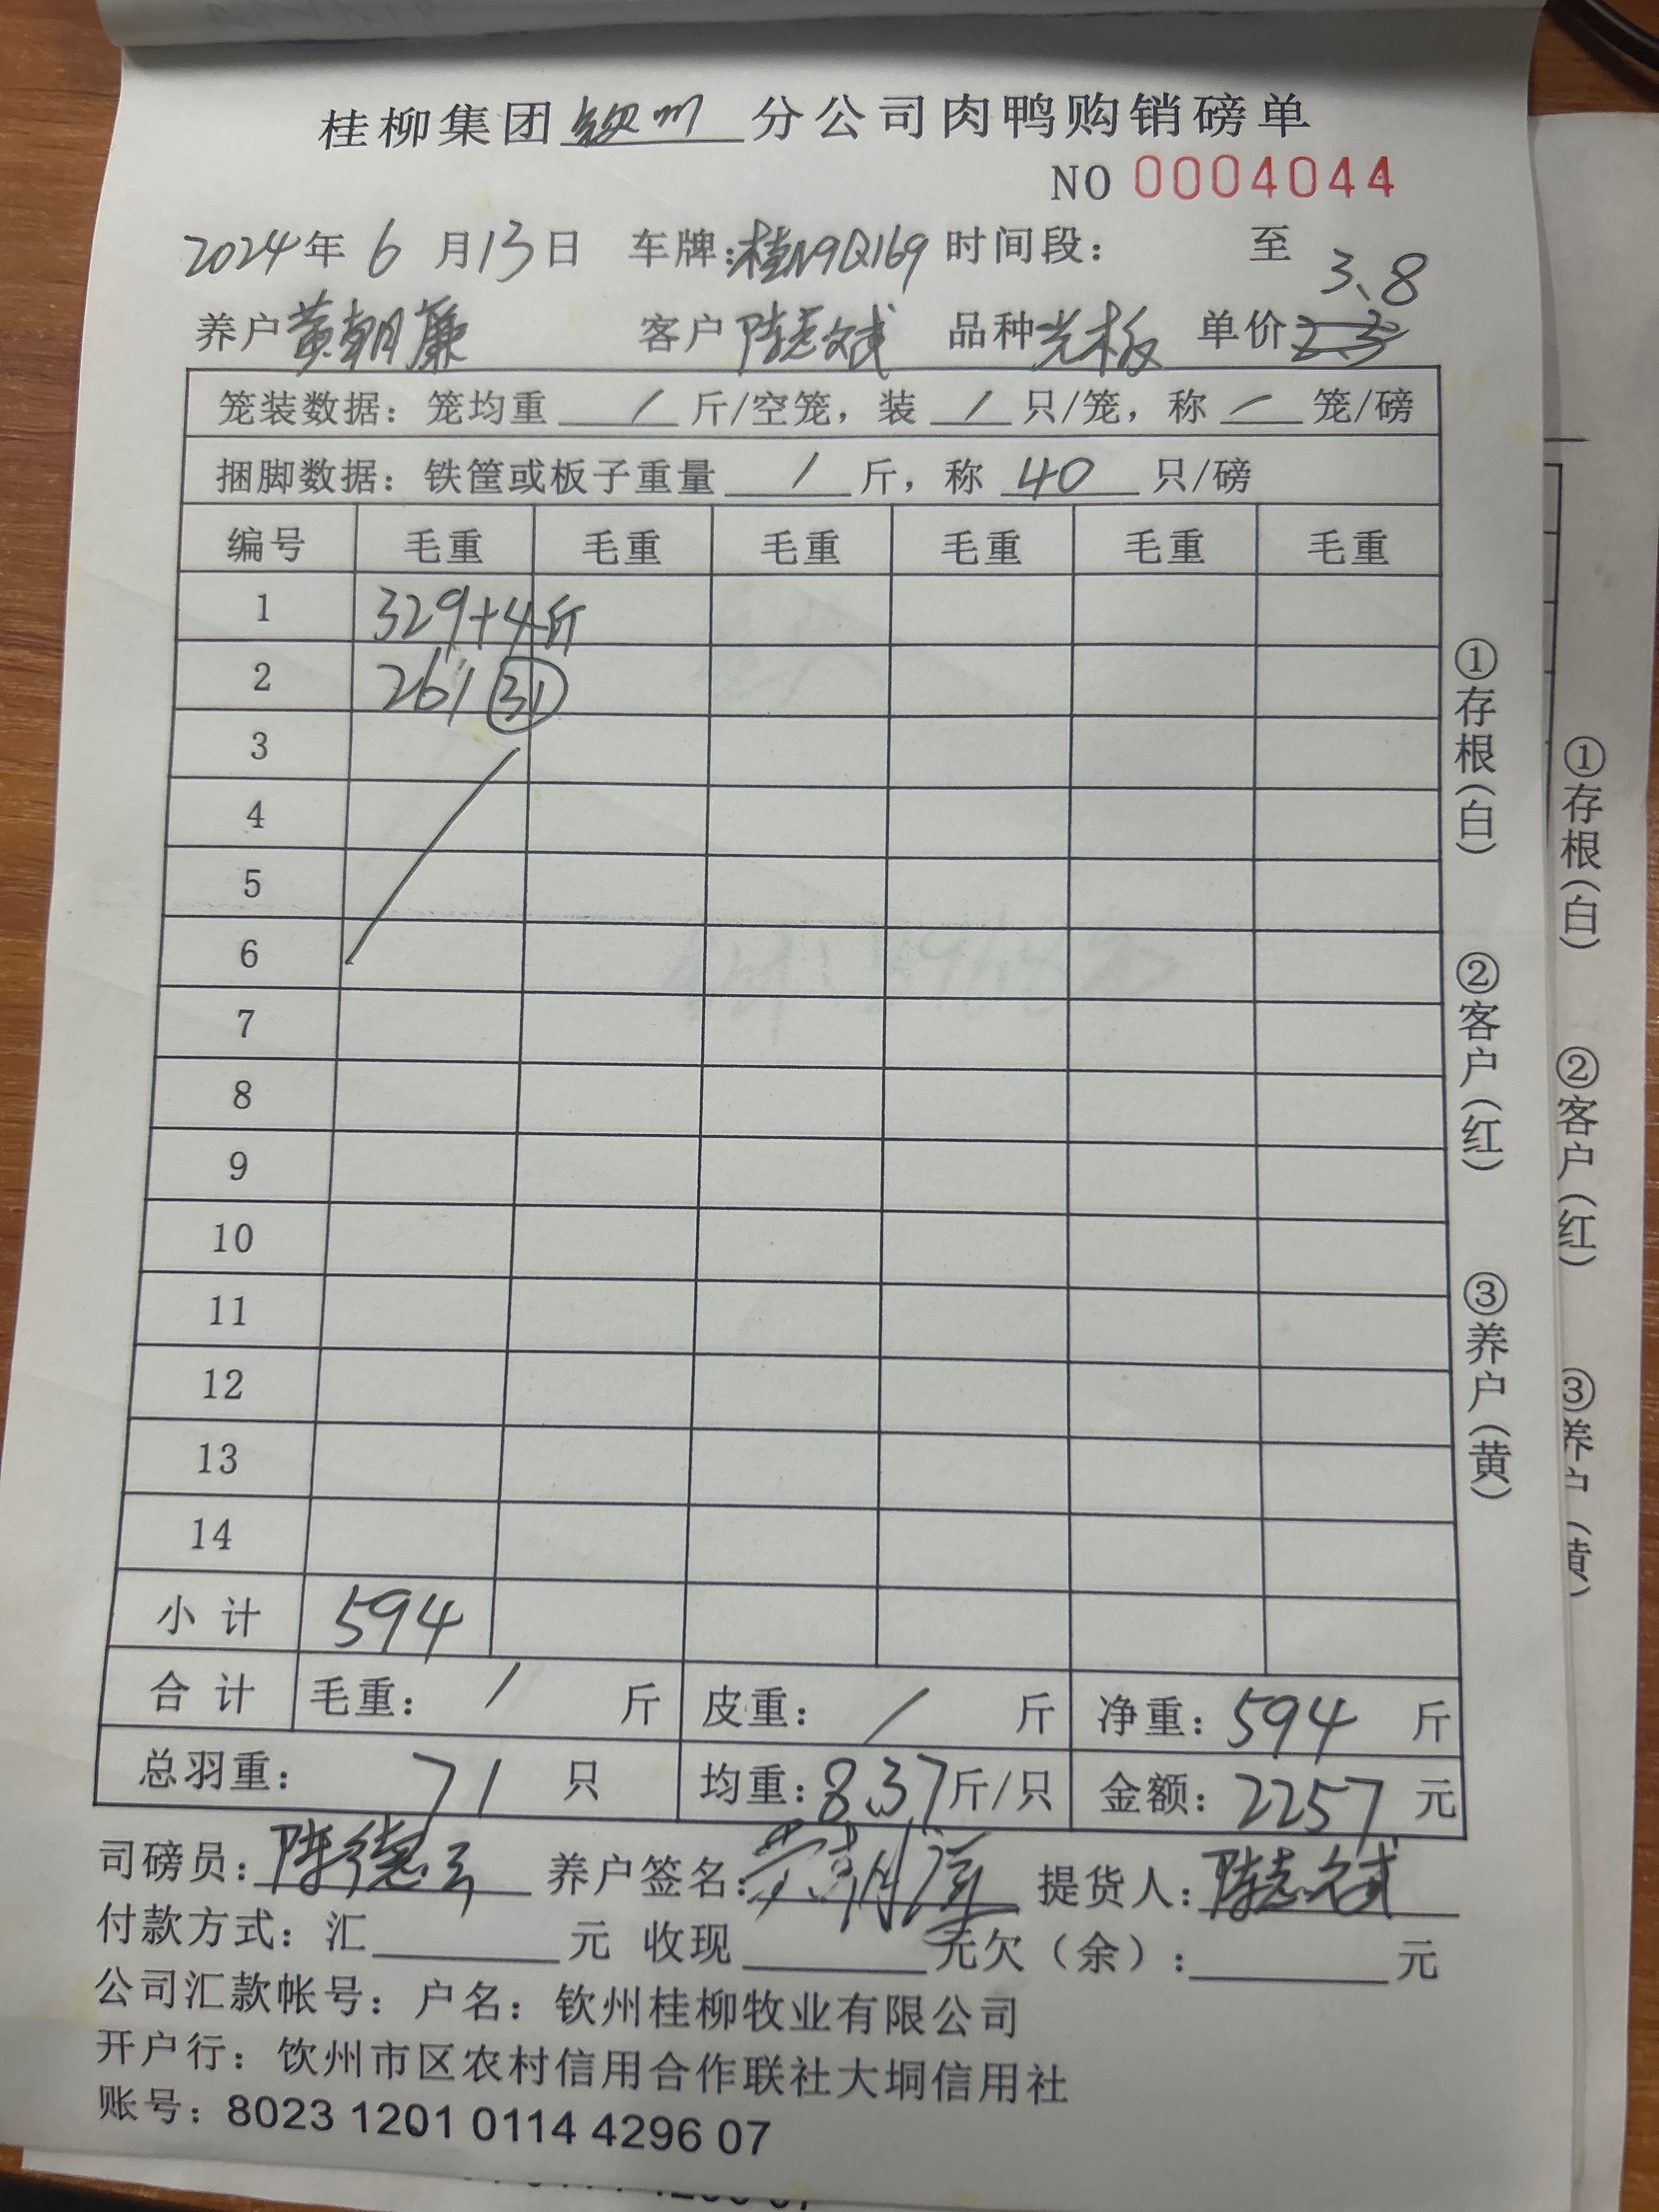 桂柳集团 钦州 分公司肉鸭购销磅单
NO 0004044
2024年 6 月13日 车牌:桂N9Q169 时间段: 至
养户 黄朝廉 客户 陈志斌 品种 光板 单价 3.8
笼装数据: 笼均重 / 斤/空笼, 装 / 只/笼, 称 / 笼/磅
捆脚数据: 铁筐或板子重量 / 斤, 称 40 只/磅
编号 毛重 毛重 毛重 毛重 毛重 毛重
1 329+4斤
2 261 31
3
4
5
6
7
8
9
10
11
12
13
14
小计 594
合计 毛重: / 斤 皮重: / 斤 净重: 594 斤
总羽重: 71 只 均重: 8.37斤/只 金额: 2257 元
司磅员: 陈德云 养户签名: 提货人: 陈志斌
付款方式: 汇 元 收现 元欠(余): 元
公司汇款帐号: 户名: 钦州桂柳牧业有限公司
开户行: 钦州市区农村信用合作联社大垌信用社
账号: 8023 1201 0114 4296 07
①存根(白) ②客户(红) ③养户(黄)
①存根(白) ②客户(红) ③养户(黄)